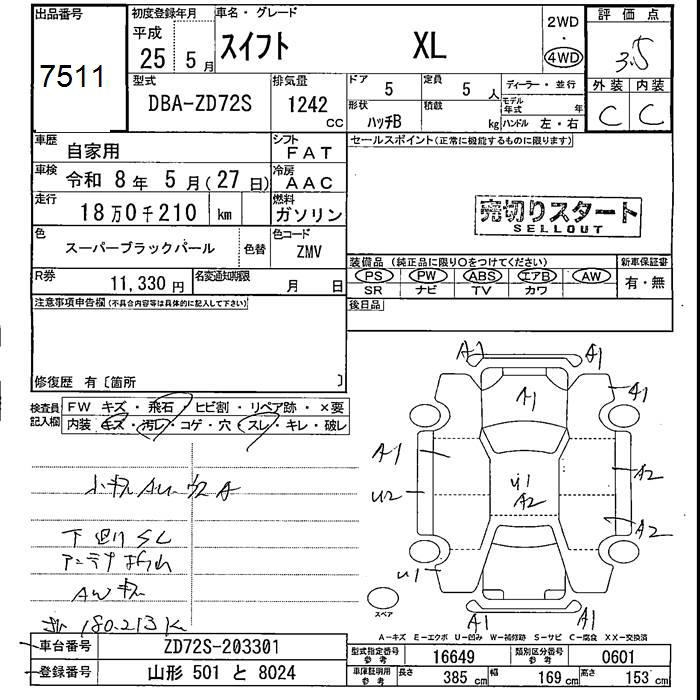 出品番号
7511
初度登録年月
平成
25 5月
車名・グレード
スイフト XL
2WD
・
4WD
評価点
3.5
外装 内装
C C
型式
DBA-ZD72S
排気量
1242
CC
ドア
5
定員
5 人
形状
ハッチB
積載
kg
ディーラー・並行
モデル年式 年
ハンドル 左・右
車歴
自家用
シフト
FAT
車検
令和 8年 5月(27日)
冷房
AAC
走行
18万0千210 km
燃料
ガソリン
色
スーパーブラックパール
色替
色コード
ZMV
R券
11,330円
名変通知期限
月 日
セールスポイント(正常に機能するものに限ります)
売切りスタート
SELLOUT
装備品(純正品に限り〇をつけてください)
PS PW ABS エアB AW
SR ナビ TV カワ
新車保証書
有・無
後日品
注意事項申告欄(不具合内容等は具体的に記入して下さい)
修復歴 有〔箇所 〕
検査員記入欄
FW キズ・飛石・ヒビ割・リペア跡・×要
内装 キズ・汚レ・コゲ・穴・スレ・キレ・破レ
下廻りSC
AWキズ
180.213K
A1
A1
A1
A1
A1
U2
U1
A2
A2
A2
U1
A1
A1
スペア
A-キズ E-エクボ U-凹み W-補修跡 S-サビ C-腐食 XX-交換済
車台番号
ZD72S-203301
登録番号
山形 501 と 8024
型式指定番号
参考
16649
類別区分番号
参考
0601
車庫証明用
参考
長さ 385 cm
幅 169 cm
高さ 153 cm